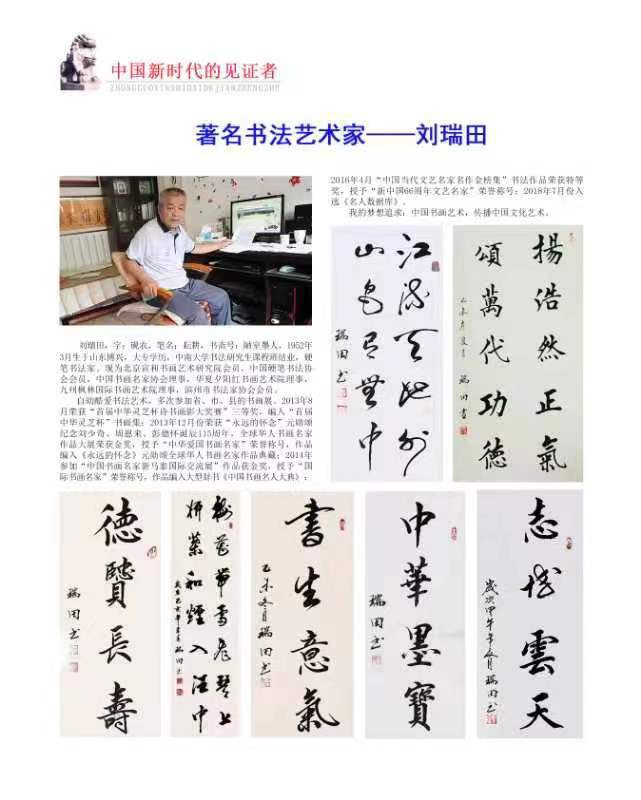 中国新时代的见证者
ZHONGGUOXINSHIDAIDEJIANZHENGZHE
著名书法艺术家——刘瑞田
刘瑞田，字：砚农，笔名：耘耕，书斋号：陋室墨人，1952年
3月生于山东博兴，大专学历，中南大学书法研究生课程班结业，硬
笔书法家。现为北京宣和书画艺术研究院会员、中国硬笔书法协
会会员，中国书画名家协会理事，华夏夕阳红书画艺术院理事，
九州枫林国际书画艺术院理事，滨州市书法家协会会员。
自幼酷爱书法艺术，多次参加省、市、县的书画展。2013年8
月荣获“首届中华灵芝杯诗书画影大奖赛”三等奖，编入“首届
中华灵芝杯”书画集；2013年12月份荣获“永远的怀念”元勋颂
纪念刘少奇、周恩来、彭德怀诞辰115周年，全球华人书画名家
作品大展荣获金奖，授予“中华爱国书画名家”荣誉称号，作品
编入《永远的怀念》元勋颂全球华人书画名家作品典藏；2014年
参加“中国书画名家新马泰国际交流展”作品获金奖，授予“国
际书画名家”荣誉称号，作品编入大型辞书《中国书画名人大典》；
2016年4月“中国当代文艺名家名作金榜集”书法作品荣获特等
奖，授予“新中国66周年文艺名家”荣誉称号；2018年7月份入
选《名人数据库》。
我的梦想追求：中国书画艺术，传播中国文化艺术。
江流天地外
山色有无中
瑞田书
揚浩然正氣
頌萬代功德
瑞田書
德賢長壽
瑞田书
柳花带雪飛琴上
妍葉和煙入酒中
書生意氣
乙未冬月瑞田书
中華墨寶
瑞田书
志搏雲天
歲次甲午年冬月瑞田书